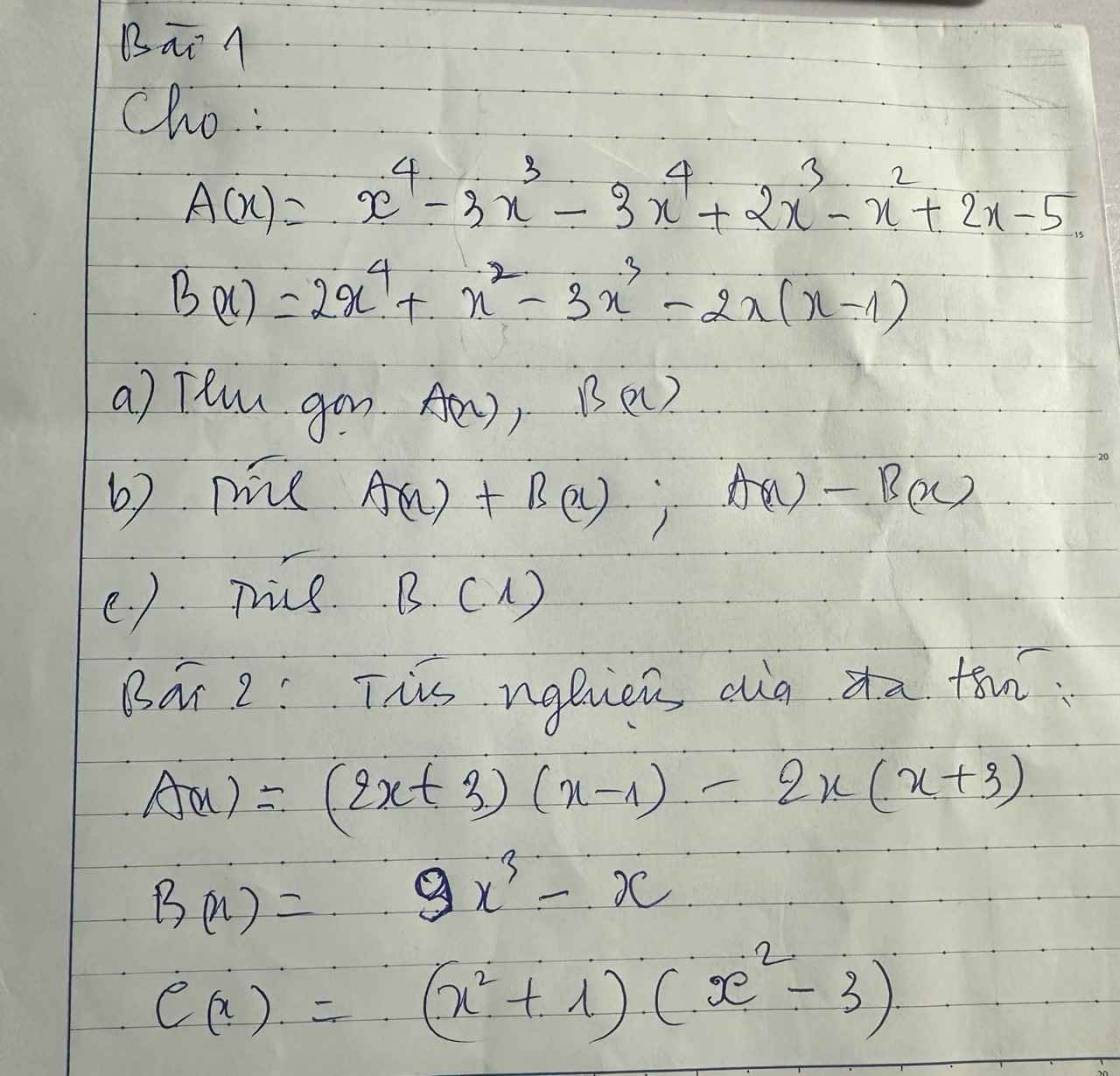 Bài 1
Cho:
A(x) = x⁴ - 3x³ - 3x⁴ + 2x³ - x² + 2x - 5
B(x) = 2x⁴ + x² - 3x³ - 2x(x-1)
a) Thu gọn A(x), B(x)
b) Tính A(x) + B(x); A(x) - B(x)
c) Tính B(1)
Bài 2: Tìm nghiệm của đa thức:
A(x) = (2x+3)(x-1) - 2x(x+3)
B(x) = 9x³ - x
C(x) = (x² + 1)(x² - 3)
15
20
20